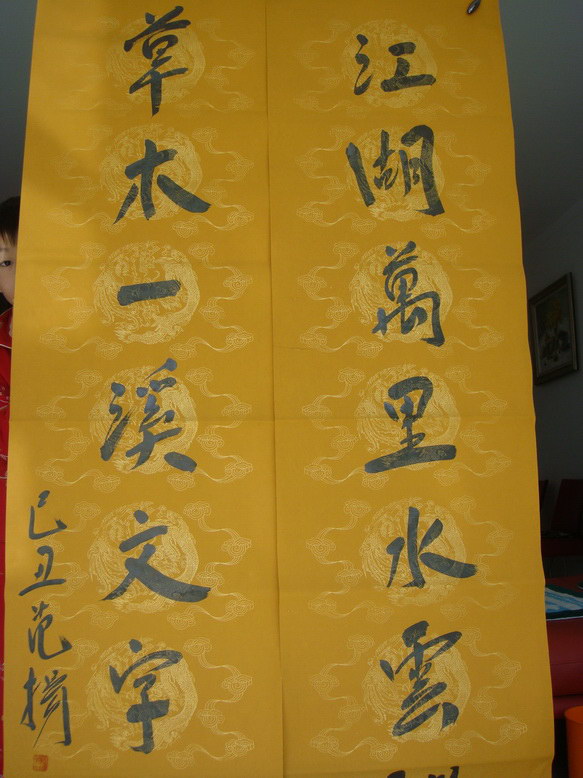 江湖萬里水雲
草木一溪文字
己丑范